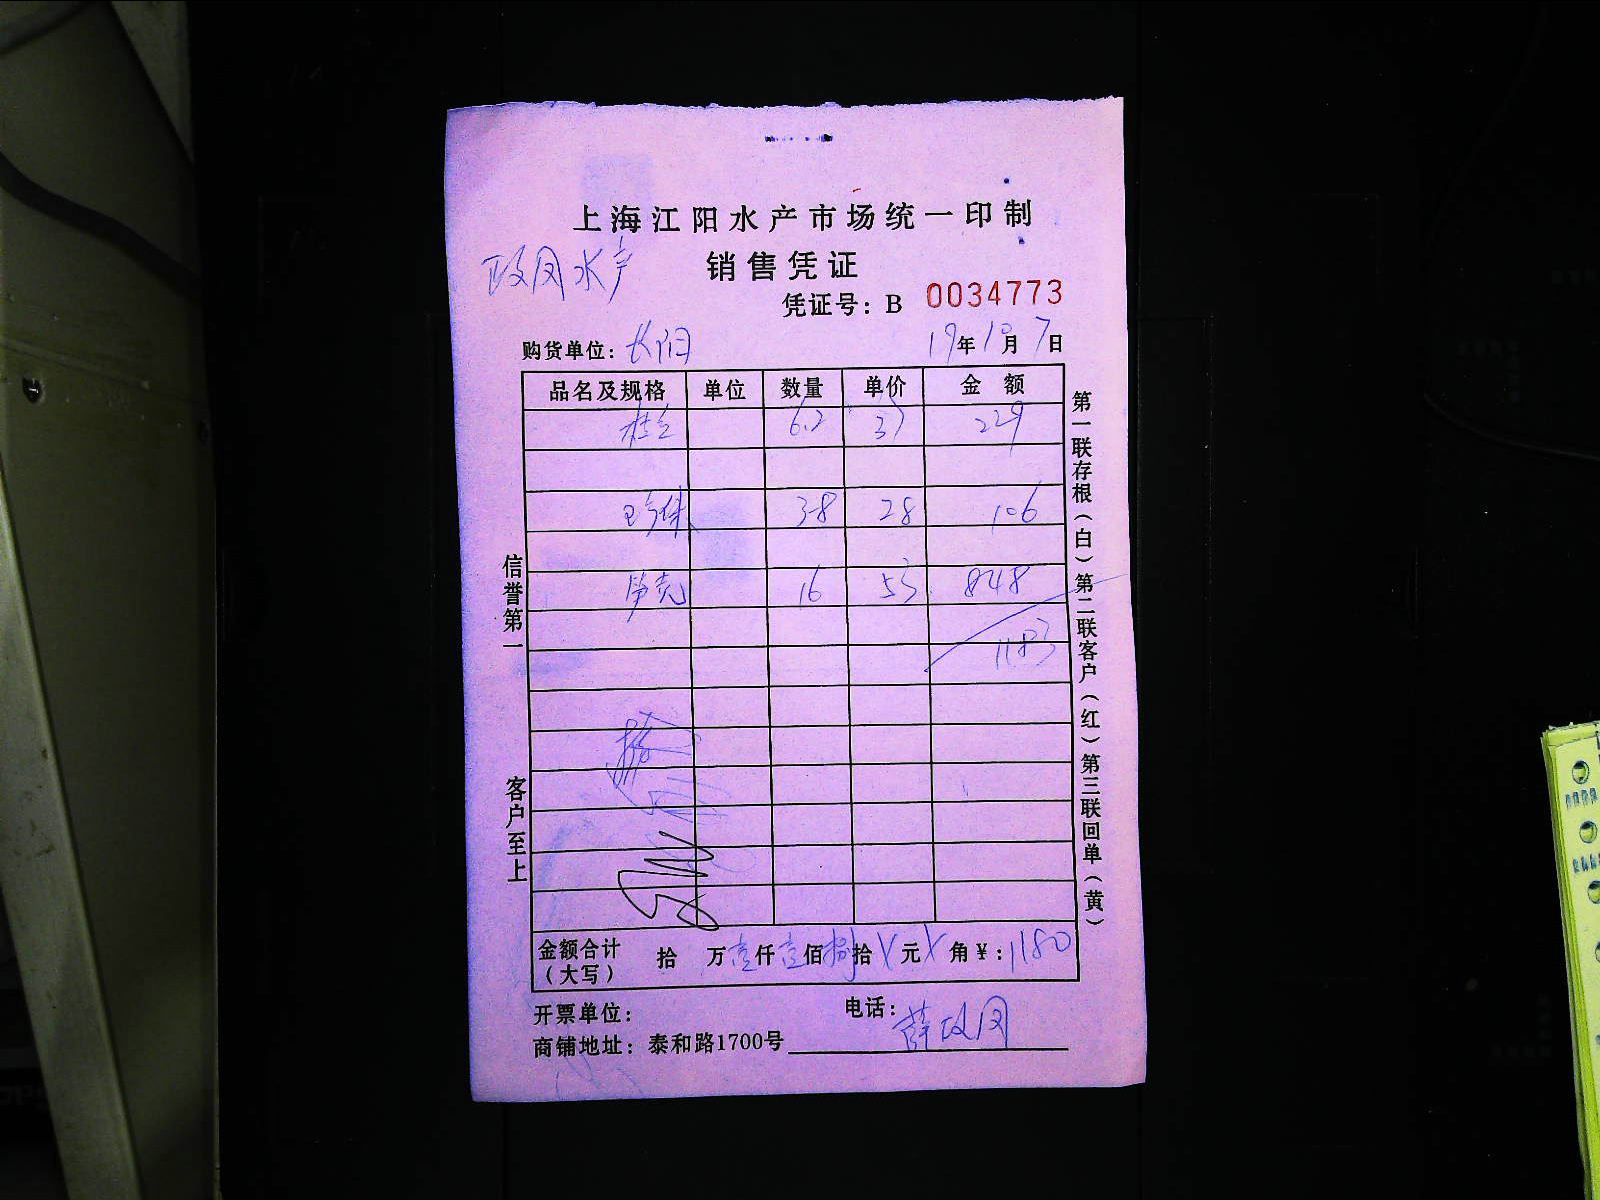 上海江阳水产市场统一印制
政凤水产
销售凭证
凭证号：B 0034773
购货单位：长阳 19年10月7日
品名及规格 单位 数量 单价 金额
桂鱼 6.2 37 229
珍珠 3.8 28 106
笋壳 16 53 848
1183
金额合计（大写） 拾 万壹仟壹佰捌拾 元 角￥：1180
开票单位： 电话：
薛政凤
商铺地址：泰和路1700号
信誉第一
客户至上
第一联存根（白）第二联客户（红）第三联回单（黄）